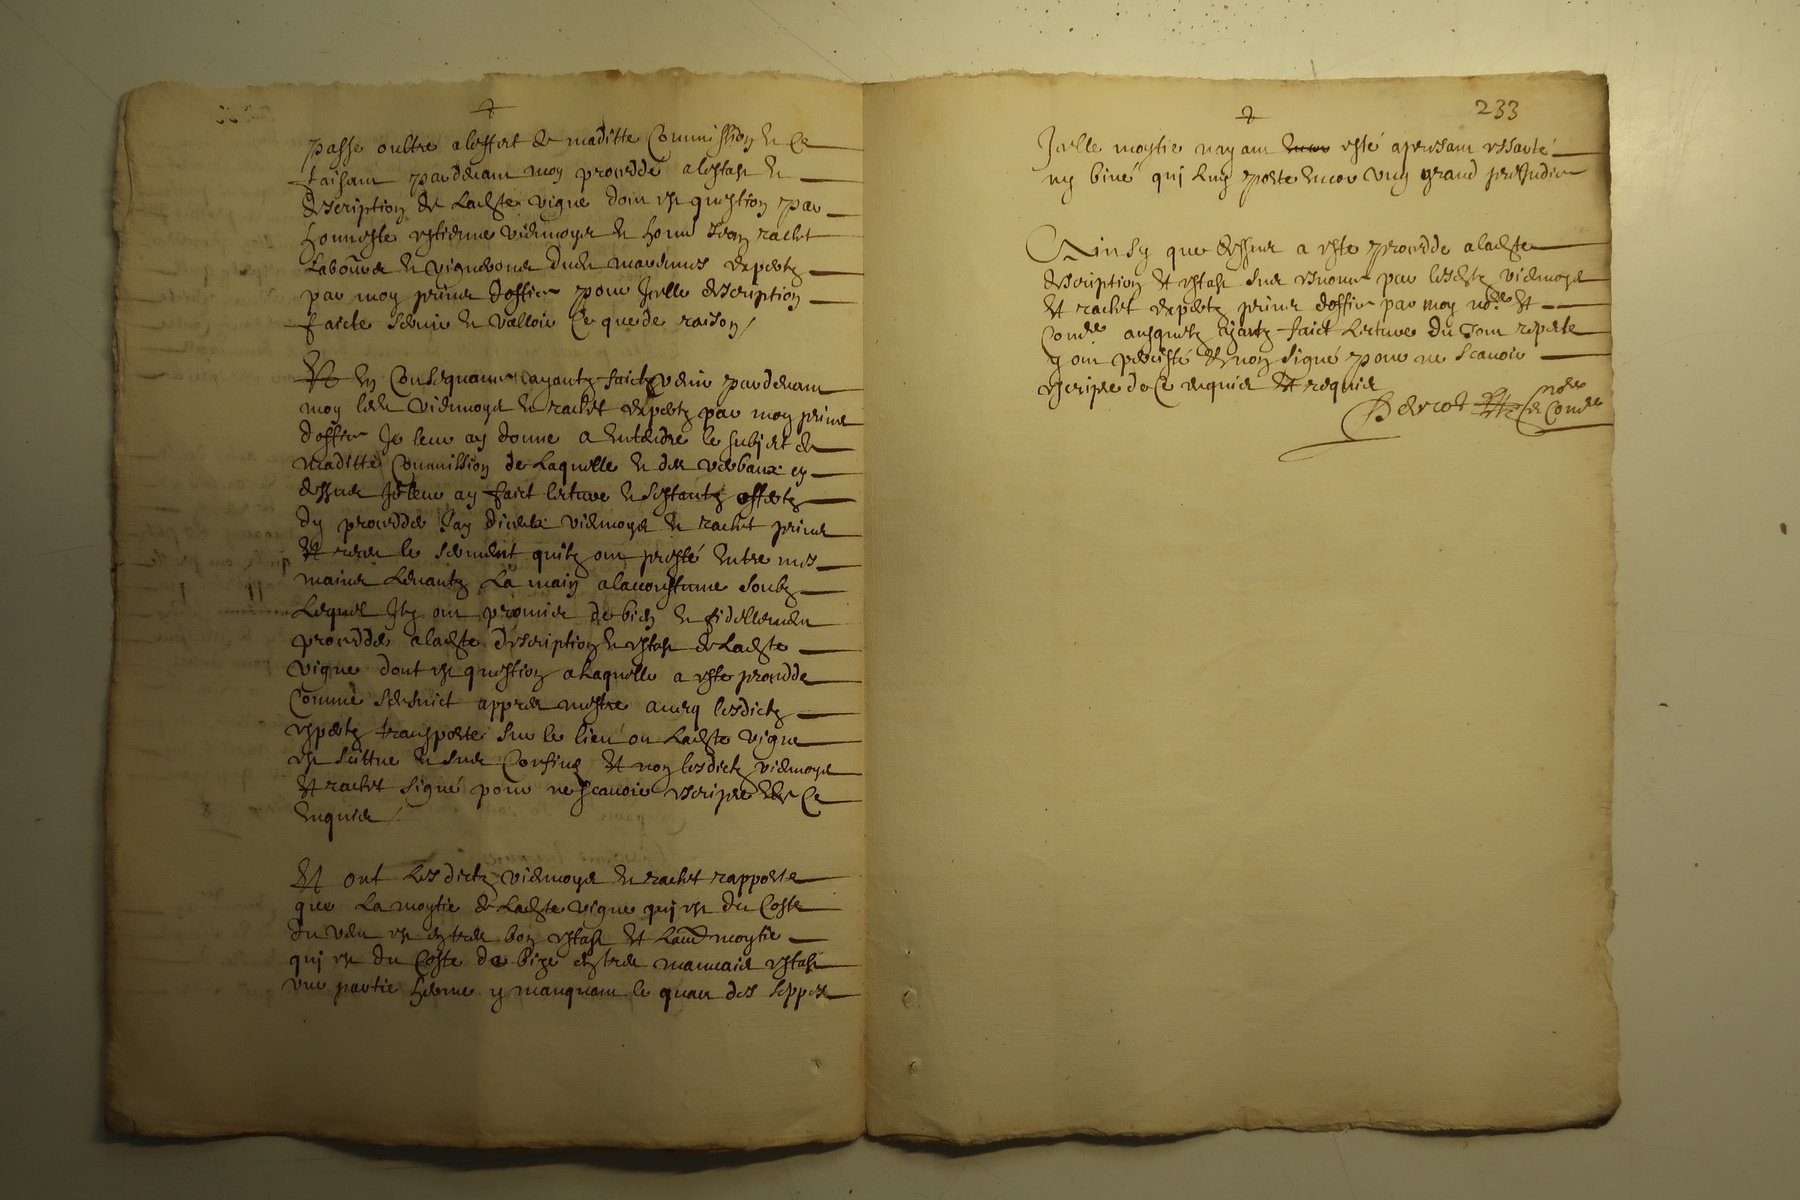 passe oultre a leffect de maditte Commission Et Ce
faisant pardevant moy procedde a lestast Et
description de ladite vigne dont est question par
honneste estienne viermoyer Et honn Jean rachet
Laboureur Et vigneronne dudit expertz
par moy prins doffice pour Jcelle description
faicte servir Et valloir Ce que de raison /
Et En Consequance ayantz faictz venir pardevant
moy lesd viermoyer Et rachet expertz par moy prins
doffice Je leur ay donne a Entendre le subject de
maditte Commission de Laquelle Et des verbaux cy
dessus Je leur ay faict lecture Et sestantz offertz
dy procedder Jay diceulx viermoyer Et rachet prins
Et receu le serment quilz ont presté Entre mes
mains Levantz La main a laccoustume soubz
Lequel Jlz ont promier de bien Et fidellement
procedder a ladite description Et estast de Ladite
vigne dont est question a Laquelle a este procedde
Comme sensuict apprer mestre avecq lesdictz
expertz transporte sur le lieu ou Ladite vigne
est scittue Et sees Confins Et non lesdictz viermoyer
Et rachet signé pour ne scavoir escripre de Ce
Enquier /
Et ont Lesdictz viermoyer Et rachet rapporte
que La moytie de Ladite vigne qui est du Coste
du vent est en tres bon estast Et Laud moytie
qui est du Coste de bize en tres mauvais estast
une partie herme y manquant le quart des seppes
233
Jcelle moytie nayant este apresant essarté
ny biné qui luy porte Encor ung grand prejudice
Ainsy que dessus a este procedde a ladite
description Et estast sus enonce par lesditz viermoyer
Et rachet expertz prins doffice par moy nore Et
Comre ausquelz ayantz faict lecture du Tout reporte
y ont percisté Et non signé pour ne scavoir
escripre de Ce enquier Et requier
nore
Et Comre